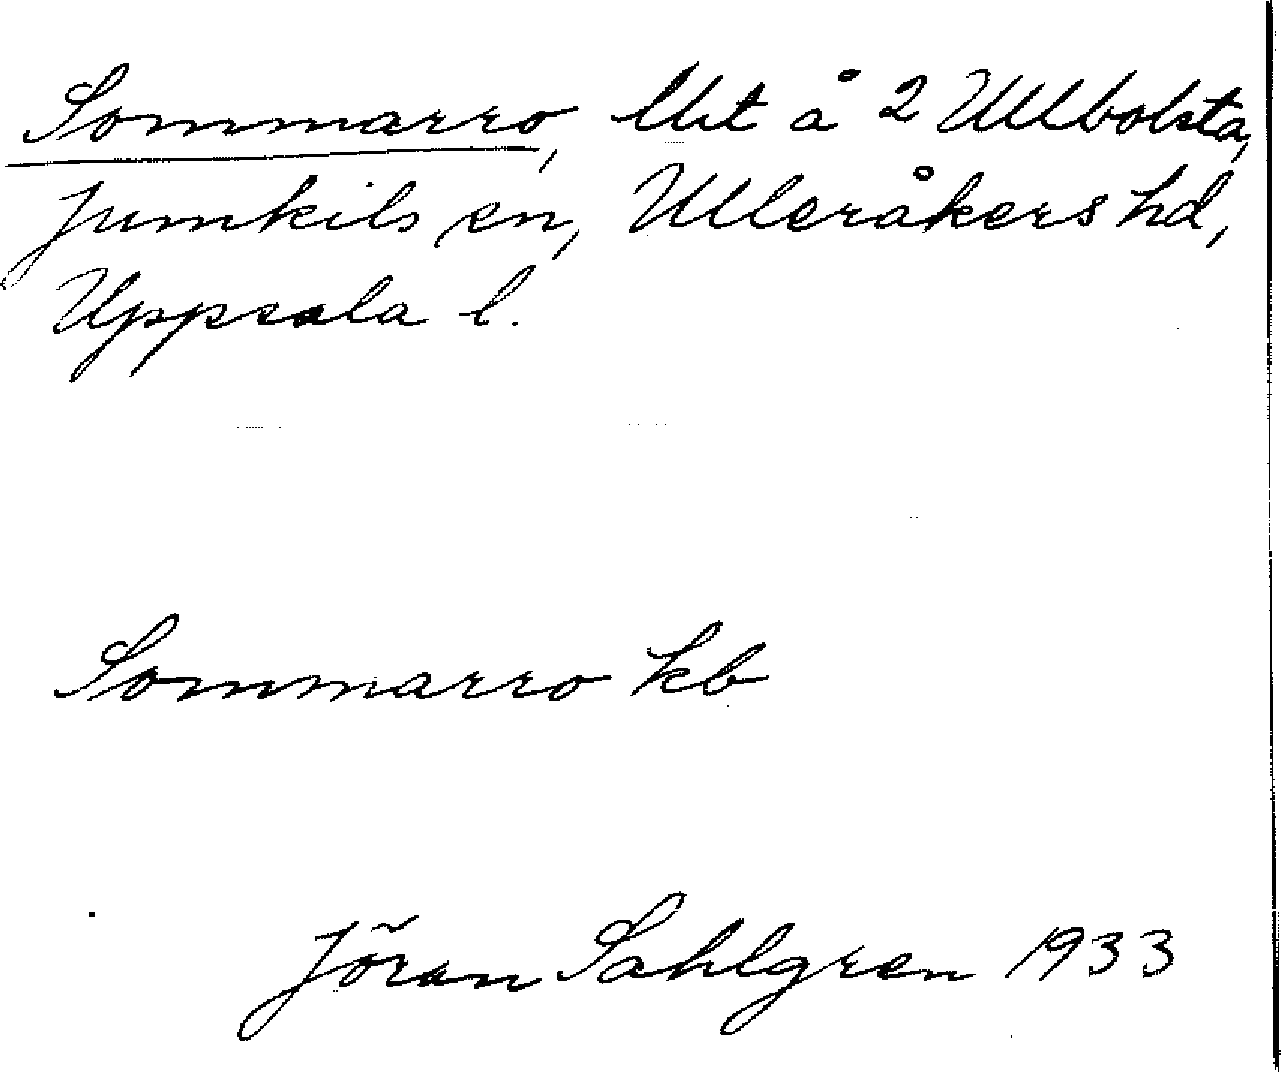 Sommarro, lht å 2 Ullbolsta,
Jumkils sn, Ulleråkers hd,
Uppsala l.
Sommarro kb
Jöran Sahlgren 1933